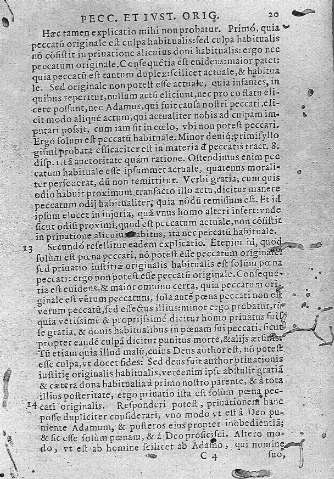 PECC. ET IVST. ORIG. 20
Hæc tamen explicatio mihi non probatur. Primó, quia
peccatũ originale est culpa habitualis: sed culpa habitualis
nõ cõsistit in priuatione alicuius doni habitualis: ergo nec
peccatum originale. Consequẽtia est euidens: maior patet:
quia peccatũ est tantum duplex: scilicet actuale, & habitua
le. Sed originale non potest esse actuale, quia infantes, in
quibus reperitur, nullum actũ eliciunt, nec pro eo statu eli-
cere possunt, nec Adamus, qui fuit causa nostri peccati, eli-
cit modo aliquẽ actum, qui actualiter nobis ad culpam im-
putari possit, cum iam sit in cœlo, vbi non potest peccari.
Ergo solum est peccatũ habituale. Minor
probata efficaciter est in materia de peccatis tract. 8.
disp. & auctoritate quam ratione. Ostendimus enim pec
catum habituale esse ipsummet actuale, quatenus morali-
ter perseuerat, dũ non remittitur. Verbi gratia, cum quis
odio habuit proximum, transacto illo actu, dicitur manere
peccatum odij habituale, quia nõdũ remissum est. Et id
ipsum elucet in iniuria, quã vnus homo alteri infert: vnde
sicut odiũ proximi, quod est peccatum actuale, non consistit
in priuatione alicuius habitus, ita nec peccatũ habituale.
13 Secundò refellitur eadem explicatio. Etenim id, quod
solum est pœna peccati, nõ potest esse peccatum originale:
sed priuatio iustitiæ originalis habitualis est solum pœna
peccati: ergo non potest esse peccatũ originale. Conseque-
tia est euidens, & maior omnino certa, quia peccatum ori-
ginale est verum peccatum, sola autẽ pœna peccati non est
verum peccatũ, sed effectus illius: minor ergo probatur,
quia verissimè & propriissimè dicitur homo priuatus fuis
se gratia, & donis habitualibus in pœnam sui peccati, sicut
propter eandẽ culpã dicitur punitus morte, & alijs
Tũ etiam quia illud malũ, cuius Deus author est, nõ potest
esse culpa, vt docet fides: Sed deus fuit author priuationis
iustitiæ originalis habitualis, vere enim ipse abstulit gratiã
& cætera dona habitualia à primo nostro parente, & à tota
illius posteritate, ergo priuatio ista est solum pœna pec-
14 cati originalis. Responderi potest, priuationem hanc
posse dupliciter considerari, vno modo vt est à Deo pu-
niente Adamum, & posteros eius propter inobedientiã;
& sic esse solum pœnam, & à Deo proficisci. Altero mo-
do, vt est ab homine scilicet ab Adamo, qui nomine
C 4 suo,